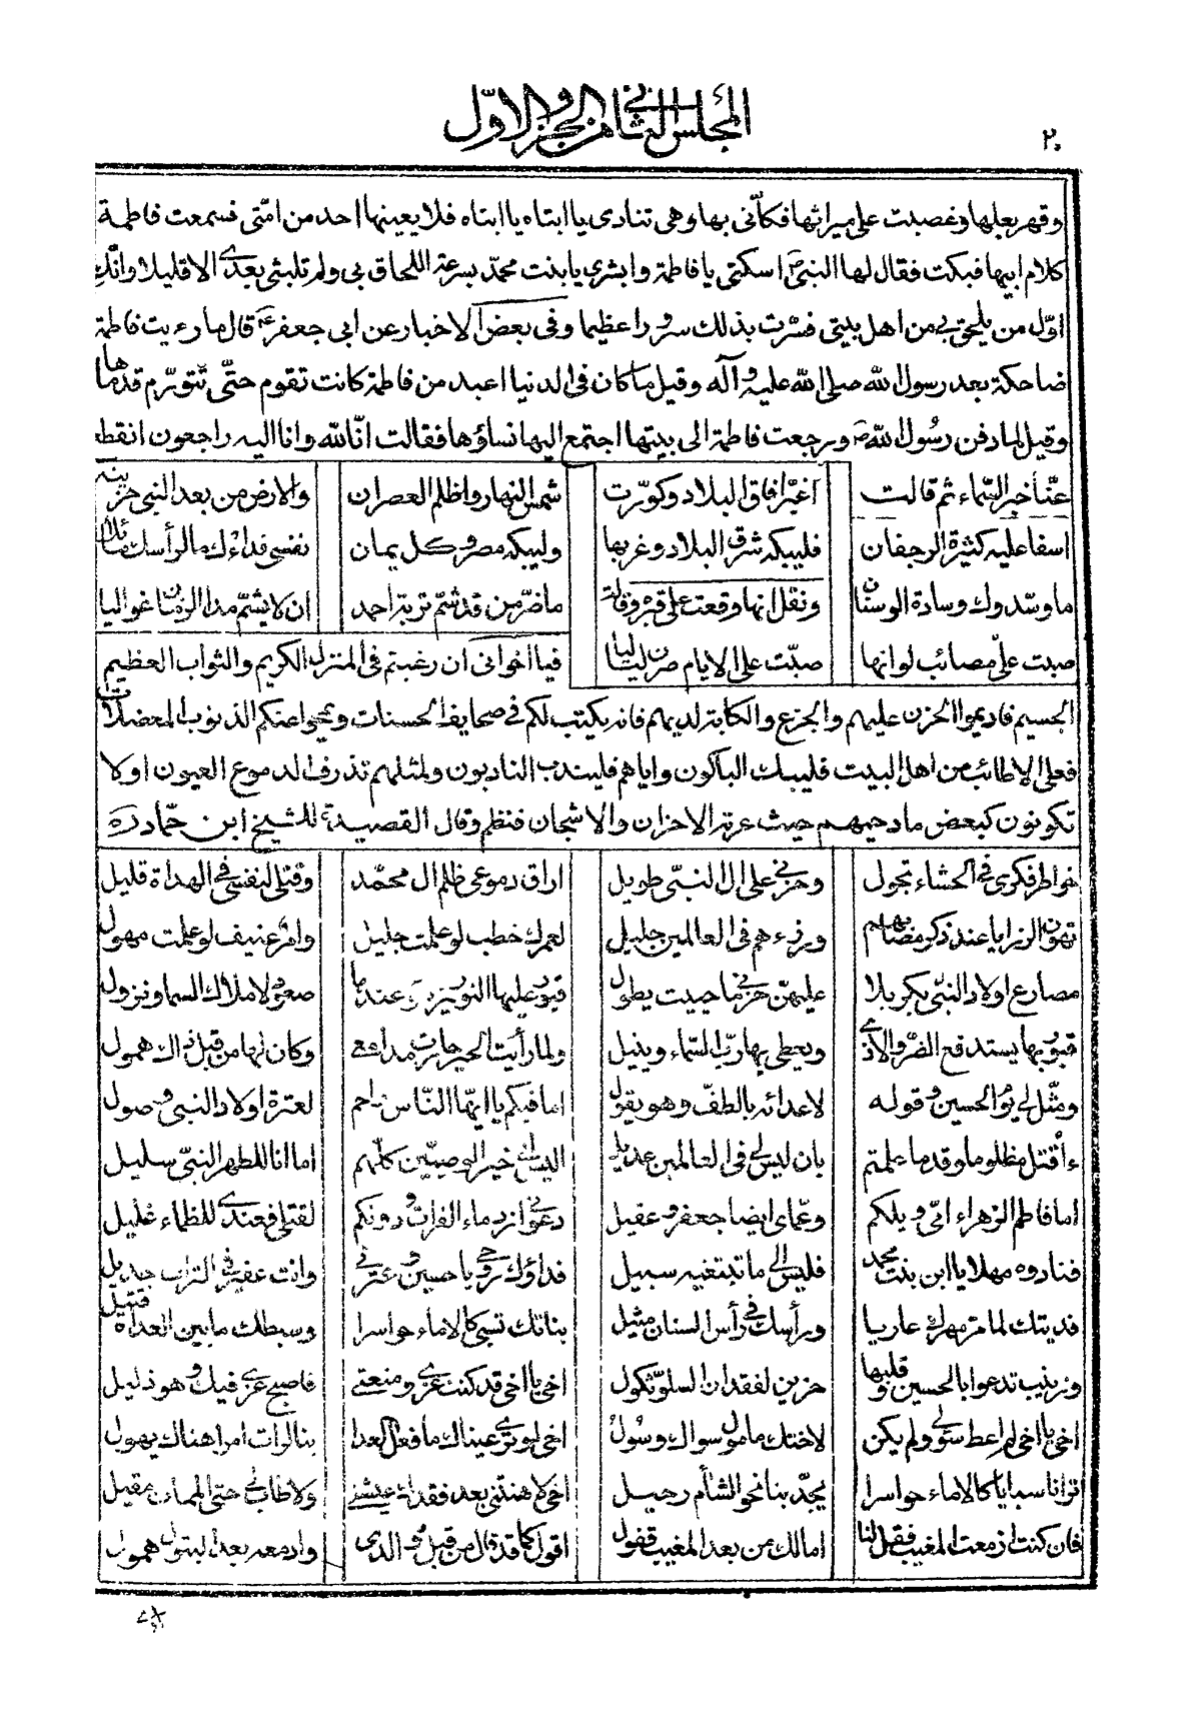 المجلس الثاني من الجزء الاول
٢٠
وقهر بعلها وغصبت على ميراثها فكأنّى بها وهى تنادى يا ابتاه يا ابتاه فلا يعينها احد من امّتى فسمعت فاطمة
كلام ابيها فبكت فقال لها النبىّ ص اسكتى يا فاطمة وابشرى يا بنت محمّد بسرعة اللحاق بى ولم تلبثى بعدى الا قليلا وانّك
اوّل من يلحق بى من اهل بيتى فسرّت بذلك سرورا عظيما وفى بعض الاخبار عن ابى جعفر ع قال ما رءيت فاطمة
ضاحكة بعد رسول الله صلى الله عليه وآله وقيل ما كان فى الدنيا اعبد من فاطمة كانت تقوم حتّى تتورّم قدماها
وقيل لما دفن رسول الله ص ورجعت فاطمة الى بيتها اجتمع اليها نساؤها فقالت انّا لله وانا اليه راجعون انقطع
عنّا خبر السّماء ثم قالت اغبرّ افاق البلاد وكورّت شمس النهار واظلم العصران والارض من بعد النبى حزينة
اسفا عليه كثيرة الرجفان فليبكه شرق البلاد وغربها وليبكه مصر وكل يمان نفسى فداءك ما لرأسك مائلا
ما وسّدوك وسادة الوسنان ونقل انها وقعت على قبره وقالت ما ضرّ من قد شمّ تربة احمد ان لا يشمّ مدا الزمان غواليا
صبت علىّ مصائب لو انها صبّت على الايام صرن لياليا فيا اخوانى ان رغبتم فى المنزل الكريم والثواب العظيم
الجسيم فاديموا الحزن عليهم والجزع والكابة لديهم فانه يكتب لكم فى صحايف الحسنات ويمحوا عنكم الذنوب المعضلات
فعلى الاطائب من اهل البيت فليبك الباكون واياهم فليندب النادبون ولمثلهم تذرف الدموع العيون اولا
تكونون كبعض مادحيهم حيث عرته الاحزان والاشجان فنظم وقال القصيدة للشيخ ابن حمّاد ره
خواطر فكرى فى الحشاء تجول وحزنى على ال النبّى طويل اراق دموعى ظلم ال محمّد وقتلى لنفسى فى الهداة قليل
تهون الرزايا عند ذكر مصابهم ورزءهم فى العالمين جليل لعمرك خطب لو علمت جليل وامر عنيف لو علمت مهول
مصارع اولاد النبّى بكربلا عليهنّ حزنى ما حييت يطول قبور عليها النور يزهو وعندها صعود لاملاك السما ونزول
قبور بها يستدفع الضرّ والاذى ويعطى بها ربّ السّماء وينيل ولما رأيت الحير حارت مدامعى وكان لها من قبل ذاك همول
ومثّل لى يوم الحسين وقوله لاعدائه بالطفّ وهو يقول اما فيكم يا ايّها النّاس راحم لعترة اولاد النبى وصول
ءاقتل مظلوما وقدما علمتم بان ليس لى فى العالمين عديل اليس ابى خير الوصيّين كلّهم اما انا للطهر النبّى سليل
اما فاطم الزهراء امّى ويلكم وعمّاى ايضا جعفر وعقيل دعونى ازد ماء الفرات ودونكم لقتلى فعندى للظماء غليل
فنادوه مهلا يا ابن بنت محمد فليس الى ما تبتغيه سبيل فداؤك روحى يا حسين وعترتى وانت عفير فى التراب جديل
فديتك لما مرّ مهرك عاريا ورأسك فى رأس السنان مثيل بناتك تسبى كالاماء حواسرا وسبطك ما بين العداة قتيل
وزينب تدعوا بالحسين وقلبها حزين لفقدان السلوّ ثكول اخى يا اخى قد كنت عزى ومنعتى فاصبح عزى فيك وهو ذليل
اخى يا اخى لم اعط سؤلى ولم يكن لاختك مامول سواك وسول اخى لو ترى عيناك ما فعل العدا بنا لرات امرا هناك يهول
ترانا سبايا كالاماء حواسرا يجدّ بنا نحو الشأم رحيل اخى لا هنتنى بعد فقدك عيشتى ولا طاب لى حتى الممات مقيل
فان كنت ازمعت المغيب فقل لنا امالك من بعد المغيب قفول اقول كما قد قال من قبل والدى وادمعه بعد البتول همول